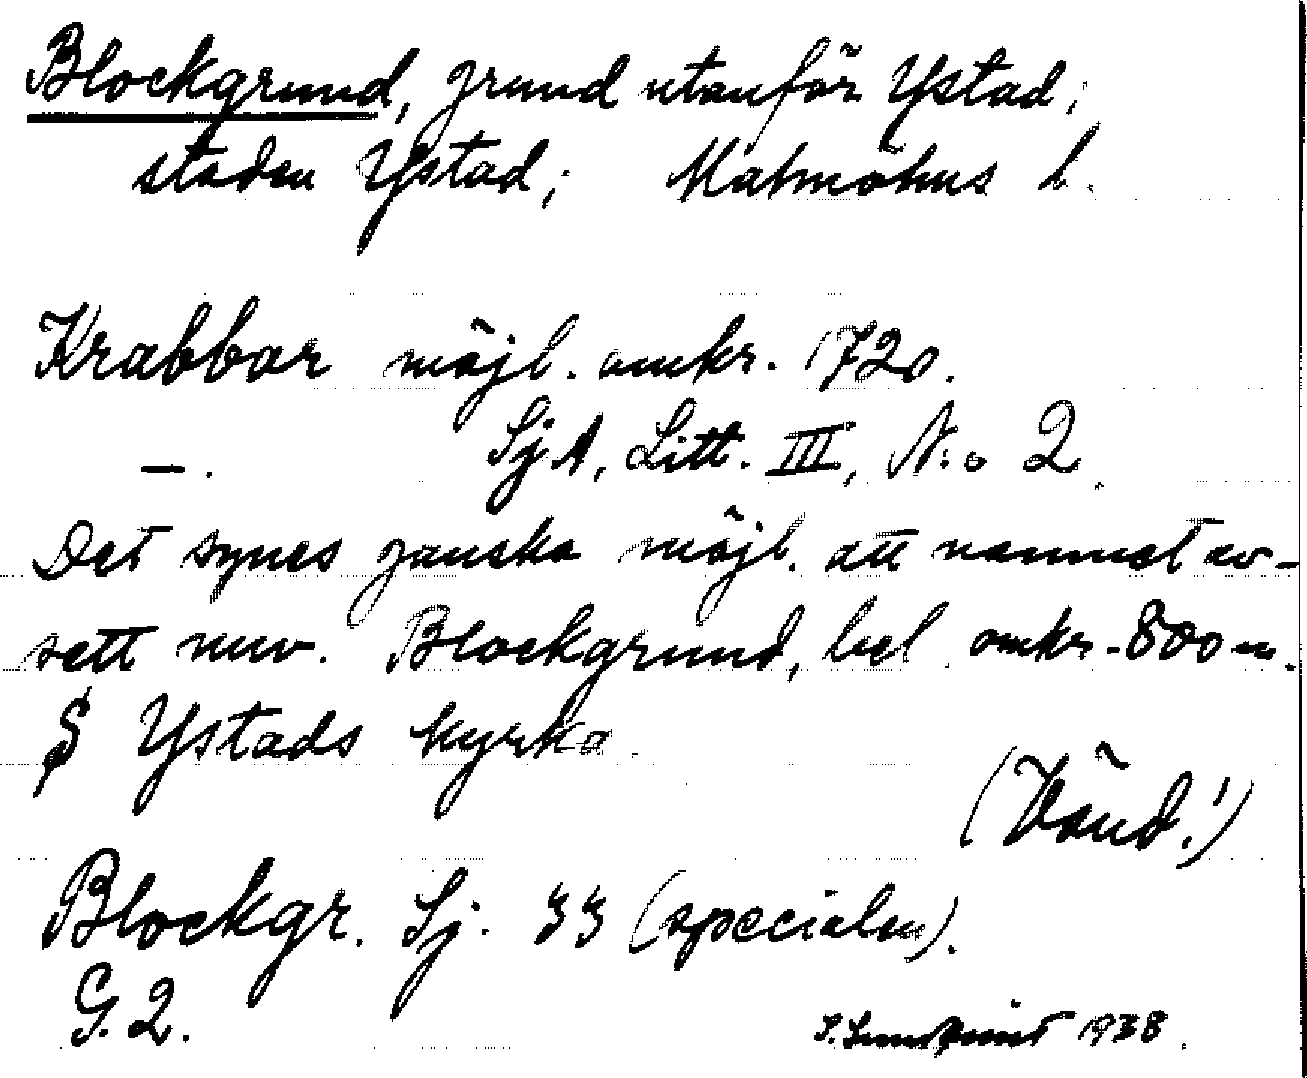 Blockgrund, grund utanför Ystad;
staden Ystad; Malmöhus l.
Krabbar möjl. omkr. 1720.
—. SjA, Litt. III, N:o 2.
Det synes ganska möjl. att namnet av-
sett nuv. Blockgrund, bel. omkr. 800 m.
S Ystads kyrka.
(Vänd!)
Blockgr. Sj. 33 (specialen).
G. 2.
1938.